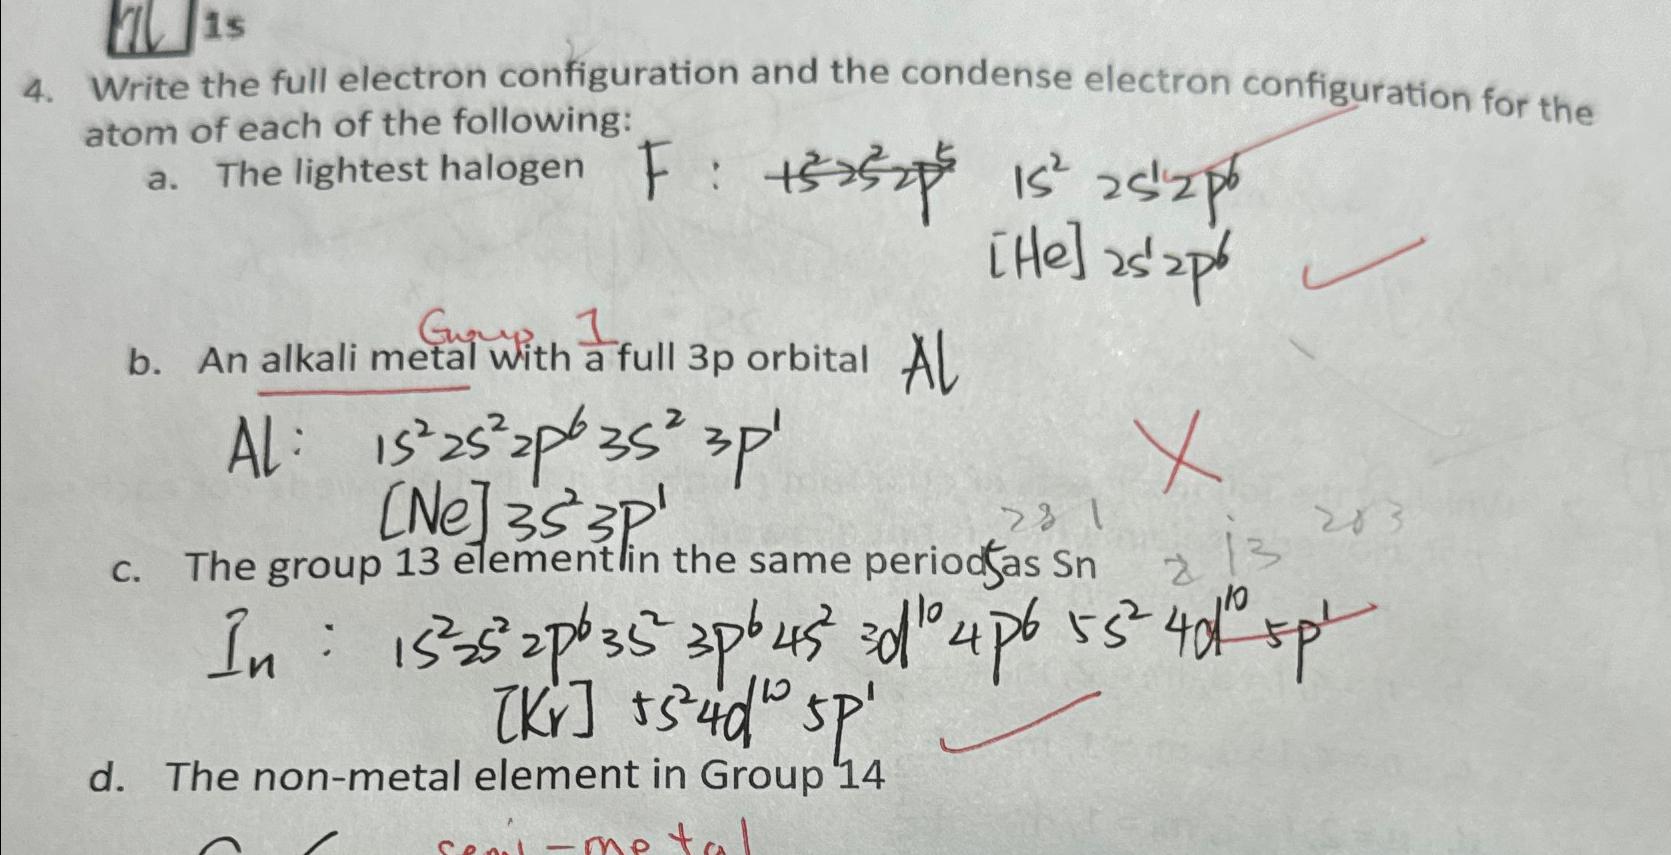 1s
4. Write the full electron configuration and the condense electron configuration for the
atom of each of the following:
a. The lightest halogen F : 1s²2s²2p⁵ 1s² 2s¹2p⁶
[He] 2s¹2p⁶
Group 1
b. An alkali metal with a full 3p orbital Al
Al: 1s²2s²2p⁶3s² 3p¹
[Ne] 3s²3p¹
281 283
c. The group 13 element in the same period 5 as Sn 2 13
In : 1s²2s²2p⁶3s² 3p⁶4s² 3d¹⁰4p⁶ 5s² 4d¹⁰5p¹
[Kr] 5s²4d¹⁰ 5p¹
d. The non-metal element in Group 14
semi-metal